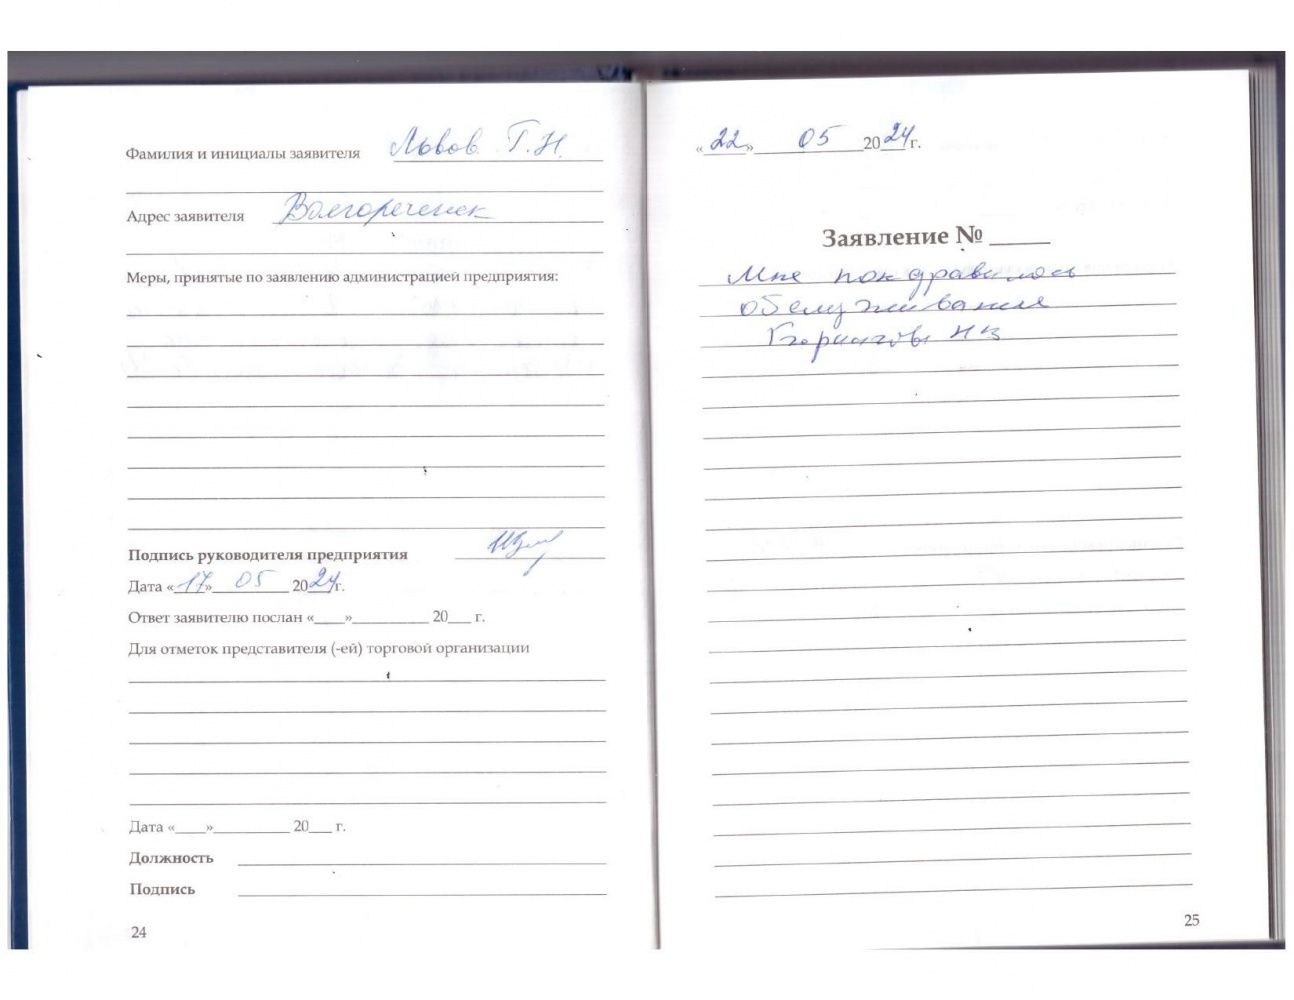 Фамилия и инициалы заявителя Львов Г.Н.
Адрес заявителя Волгореченск
Меры, принятые по заявлению администрацией предприятия:
Подпись руководителя предприятия
Дата «17» 05 2024 г.
Ответ заявителю послан «____»__________ 20___ г.
Для отметок представителя (-ей) торговой организации
Дата «____»__________ 20___ г.
Должность
Подпись
24
«22» 05 2024 г.
Заявление № _____
Мне пондравилось
обслуживание
25